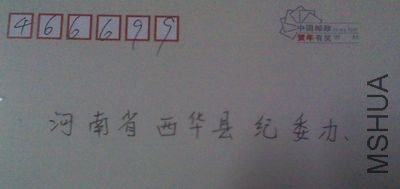 466699
中国邮政
贺年有奖
河南省西华县纪委办、
MSHUA